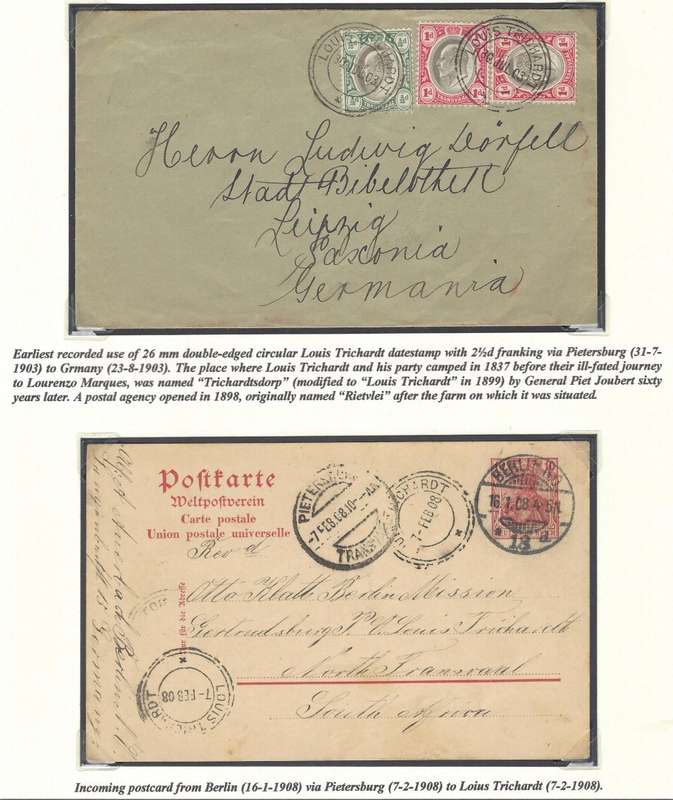 LOUIS TRICHARDT
30 JUL 03
½d ½d
1d 1d
LOUIS TRICHARDT
30 JUL 03
1d 1d
Herrn Ludwig Dörfell
Stadt Bibelothek
Leipzig
Saxonia
Germania
Earliest recorded use of 26 mm double-edged circular Louis Trichardt datestamp with 2½d franking via Pietersburg (31-7-
1903) to Grmany (23-8-1903). The place where Louis Trichardt and his party camped in 1837 before their ill-fated journey
to Lourenzo Marques, was named “Trichardtsdorp” (modified to “Louis Trichardt” in 1899) by General Piet Joubert sixty
years later. A postal agency opened in 1898, originally named “Rietvlei” after the farm on which it was situated.
Postkarte
Weltpostverein
Carte postale
Union postale universelle
PIETERSBURG
7 FEB 08
TRANSVAAL
TRICHARDT
7-FEB 08
BERLIN
16.1.08.4-5
Revd
Otto Klatt Berlin Mission
Gertrudsburg P.O. Louis Trichardt
North Transvaal
South Africa
nur für die Adresse
LOUIS TRICHARDT
7-FEB 08
Berlin
15 Germany
Incoming postcard from Berlin (16-1-1908) via Pietersburg (7-2-1908) to Loius Trichardt (7-2-1908).